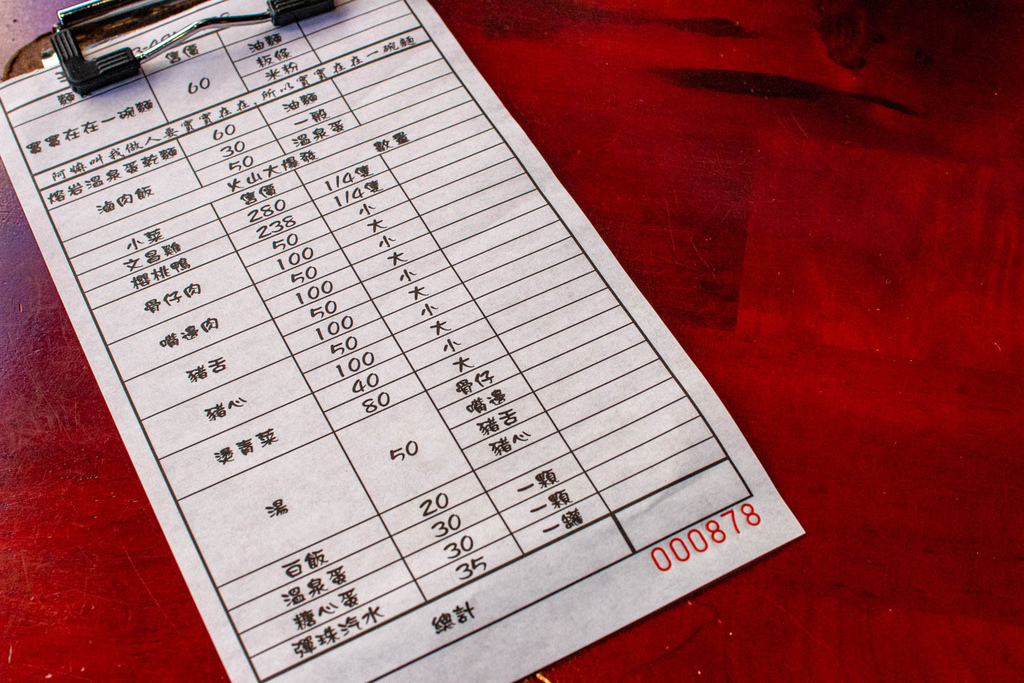 麵 售價 油麵
實實在在一碗麵 60 粄條
米粉
阿嬤叫我做人要實實在在,所以實實在在一碗麵
熔岩溫泉蛋乾麵 60 油麵
滷肉飯 30 一般
50 溫泉蛋
火山大爆發
小菜 售價 數量
文昌雞 280 1/4隻
櫻桃鴨 238 1/4隻
骨仔肉 50 小
100 大
嘴邊肉 50 小
100 大
豬舌 50 小
100 大
豬心 50 小
100 大
燙青菜 40 小
80 大
湯 50 骨仔
嘴邊
豬舌
豬心
百飯 20
溫泉蛋 30 一顆
糖心蛋 30 一顆
彈珠汽水 35 一罐
總計
000878